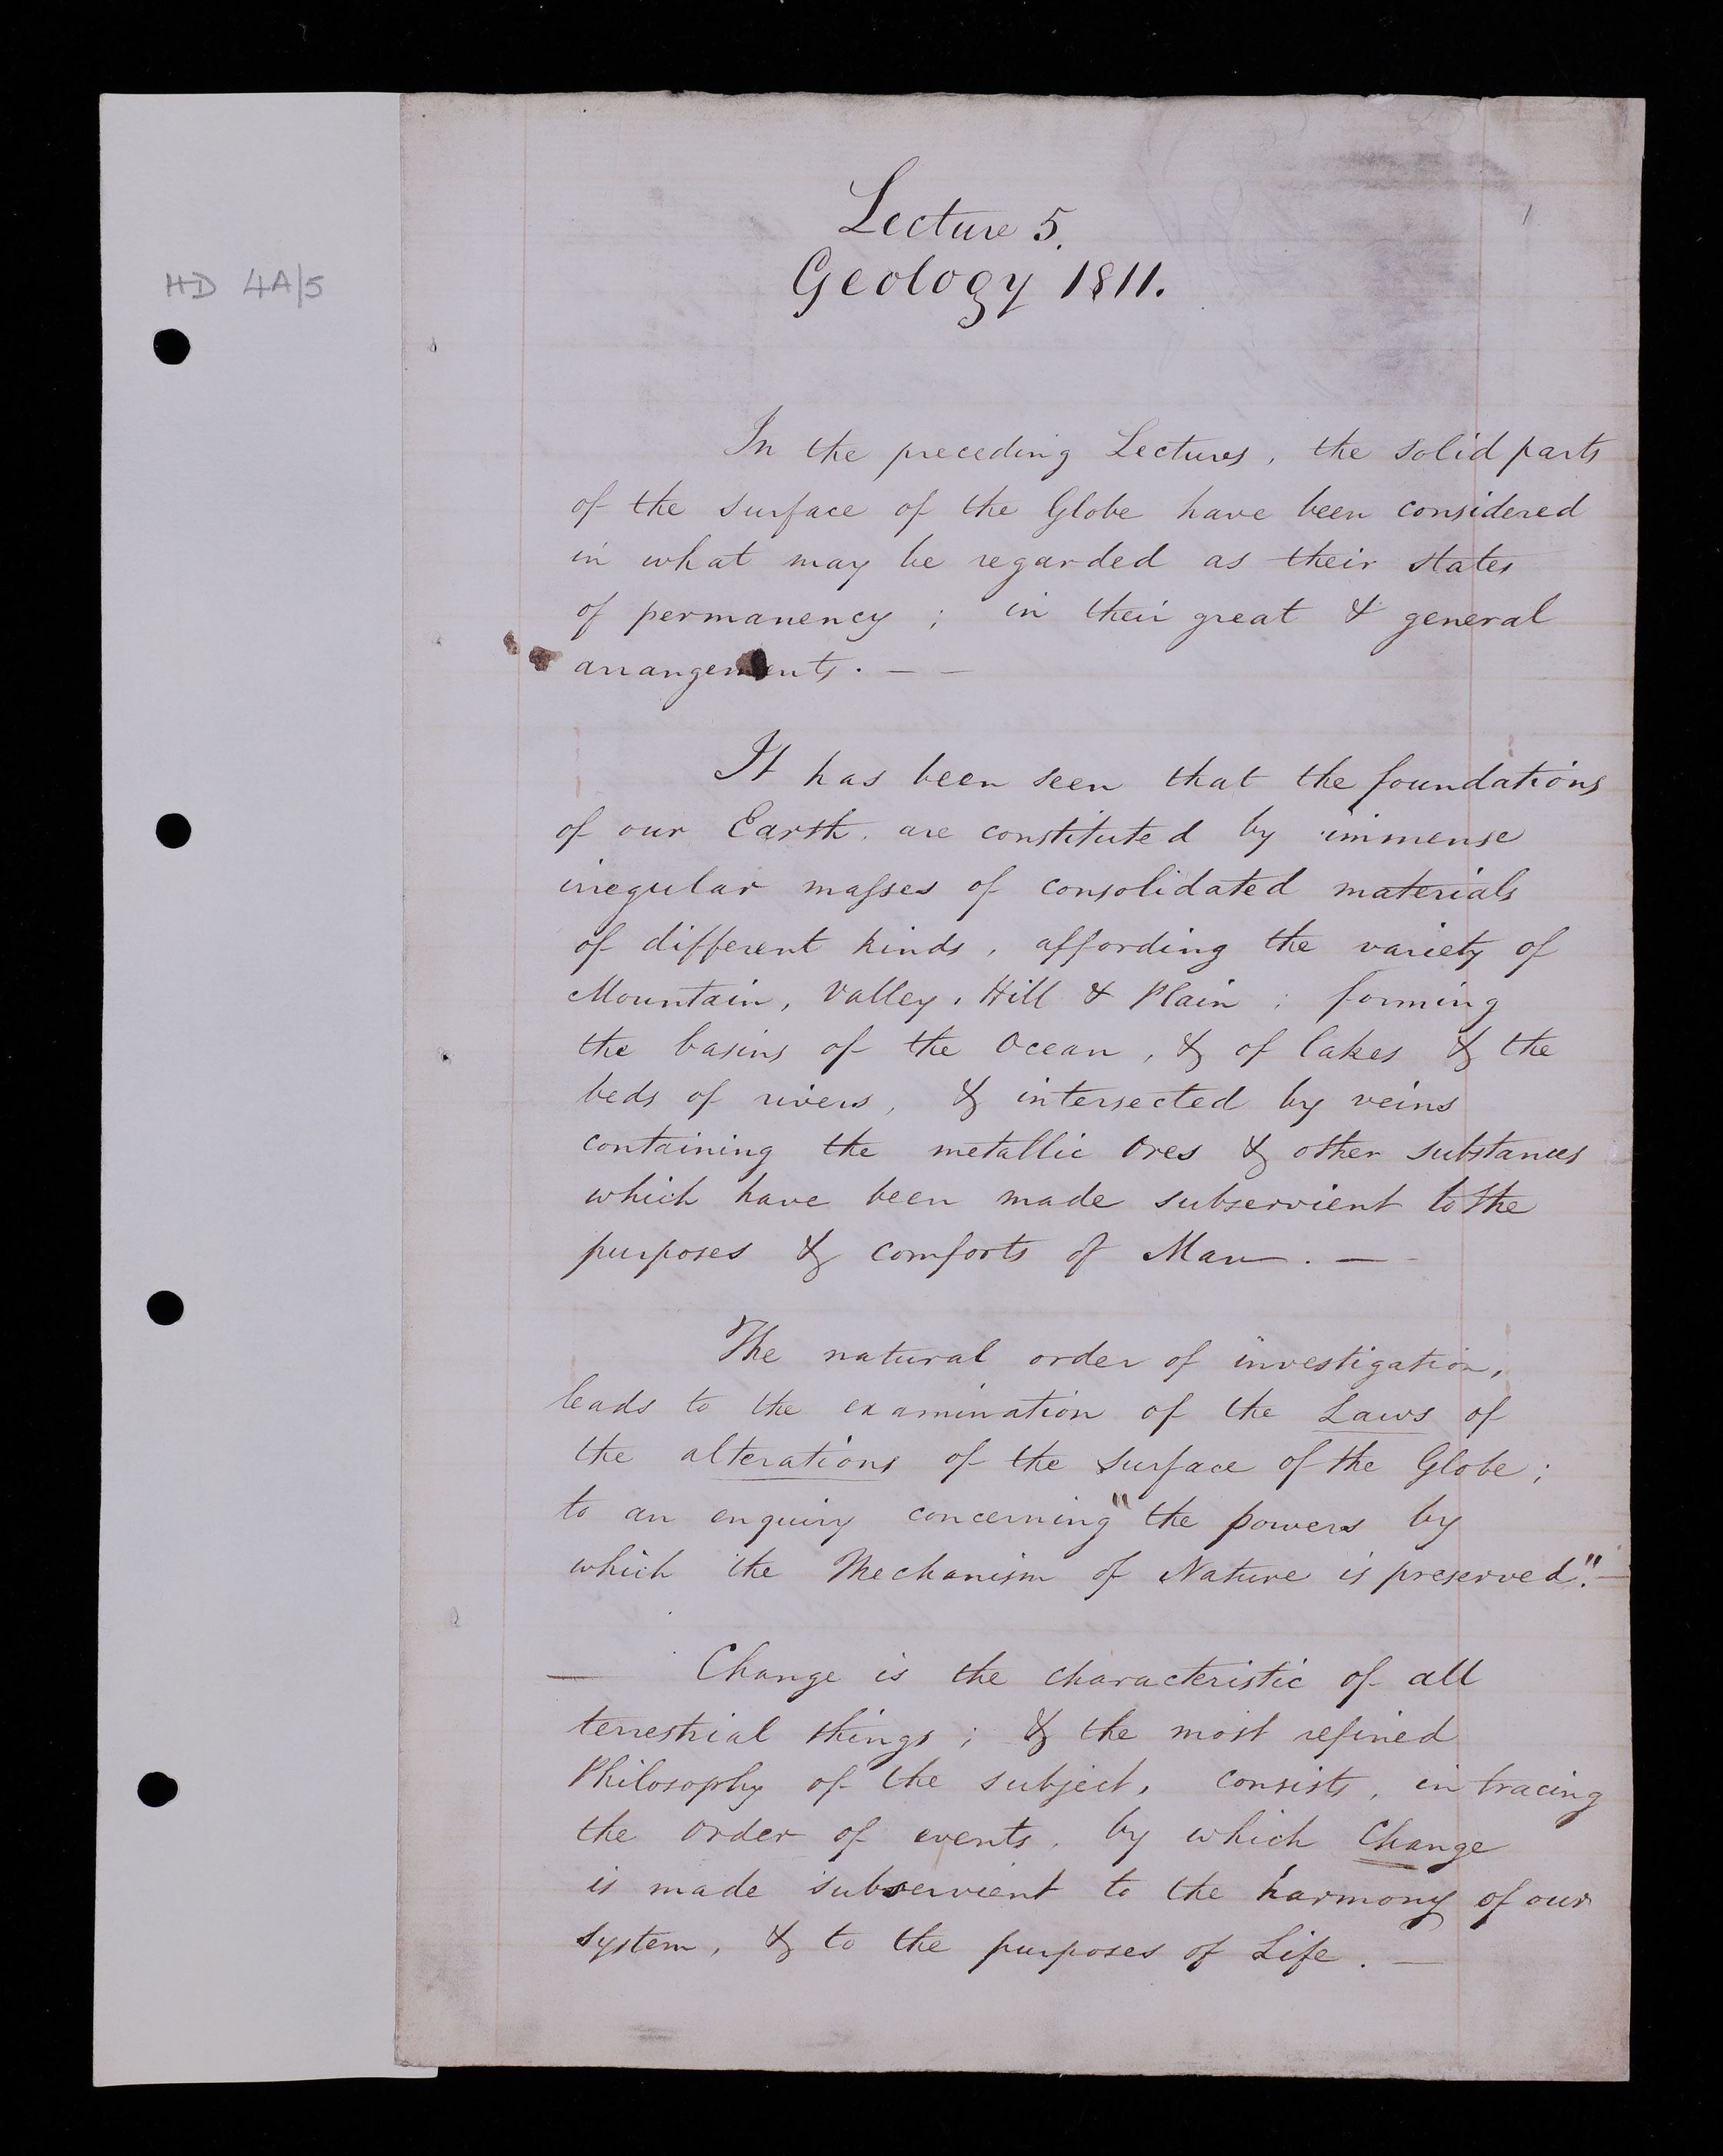 HD 4A/5
1
Lecture 5.
Geology 1811.
In the preceding Lectures, the solid parts
of the surface of the Globe have been considered
in what may be regarded as their states
of permanency ; in their great & general
arrangements. — —
It has been seen that the foundations
of our Earth, are constituted by immense
irregular maſses of consolidated materials
of different kinds, affording the variety of
Mountain, Valley, Hill & Plain ; forming
the basins of the Ocean, & of lakes & the
beds of rivers, & intersected by veins
containing the metallic Ores & other substances
which have been made subservient to the
purposes & comforts of Man. —
The natural order of investigation,
leads to the examination of the Laws of
the alterations of the surface of the Globe ;
to an enquiry concerning "the powers by
which the Mechanism of Nature is preserved". —
— Change is the characteristic of all
terrestrial things ; & the most refined
Philosophy of the subject, consists, in tracing
the order of events, by which Change
is made subservient to the harmony of our
system, & to the purposes of Life. —